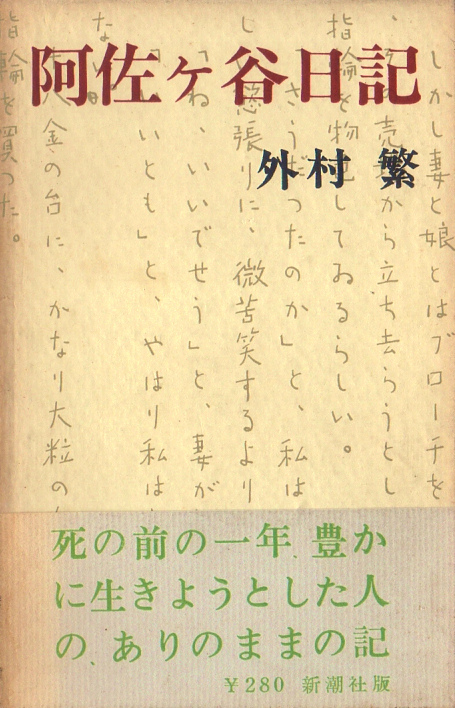 阿佐ヶ谷日記
外村 繁
しかし妻と娘とはブローチを
売場から立ち去らうとし
指輪を物色してゐるらしい。
さうだつたのか」と、私は
慾張りに、微苦笑するより
「ね、いいでせう」と、妻が
いいとも」と、やはり私は
ない。
金の台に、かなり大粒の
指輪を買つた。
死の前の一年、豊か
に生きようとした人
の、ありのままの記
￥280 新潮社版